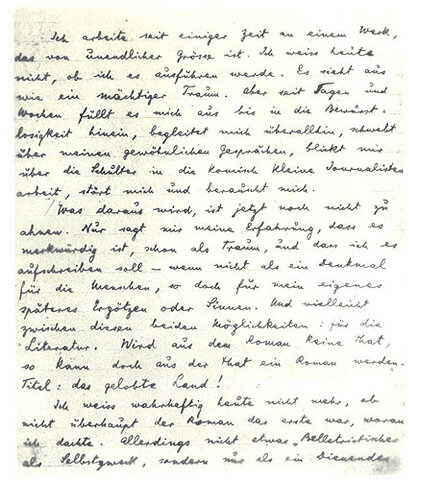 Ich arbeite seit einiger Zeit an einem Werk,
das von unendlicher Grösse ist. Ich weiss heute
nicht, ob ich es ausführen werde. Es sieht aus
wie ein mächtiger Traum. Aber seit Tagen und
Wochen füllt es mich aus bis in die Bewusst-
losigkeit hinein, begleitet mich überallhin, schwebt
über meinen gewöhnlichen Gesprächen, blickt mir
über die Schulter in die komisch kleine Journalisten
arbeit, stört mich und berauscht mich.
Was daraus wird, ist jetzt noch nicht zu
ahnen. Nur sagt mir meine Erfahrung, dass es
merkwürdig ist, schon als Traum, und dass ich es
aufschreiben soll – wenn nicht als ein Denkmal
für die Menschen, so doch für mein eigenes
späteres Ergötzen oder Sinnen. Und vielleicht
zwischen diesen beiden Möglichkeiten: für die
Literatur. Wird aus dem Roman keine That,
so kann doch aus der That ein Roman werden.
Titel: das gelobte Land!
Ich weiss wahrheftig heute nicht mehr, ob
nicht überhaupt der Roman das erste war, woran
ich dachte. Allerdings nicht etwas „Belletristisches
als Selbstzweck, sondern nur als ein Dienendes